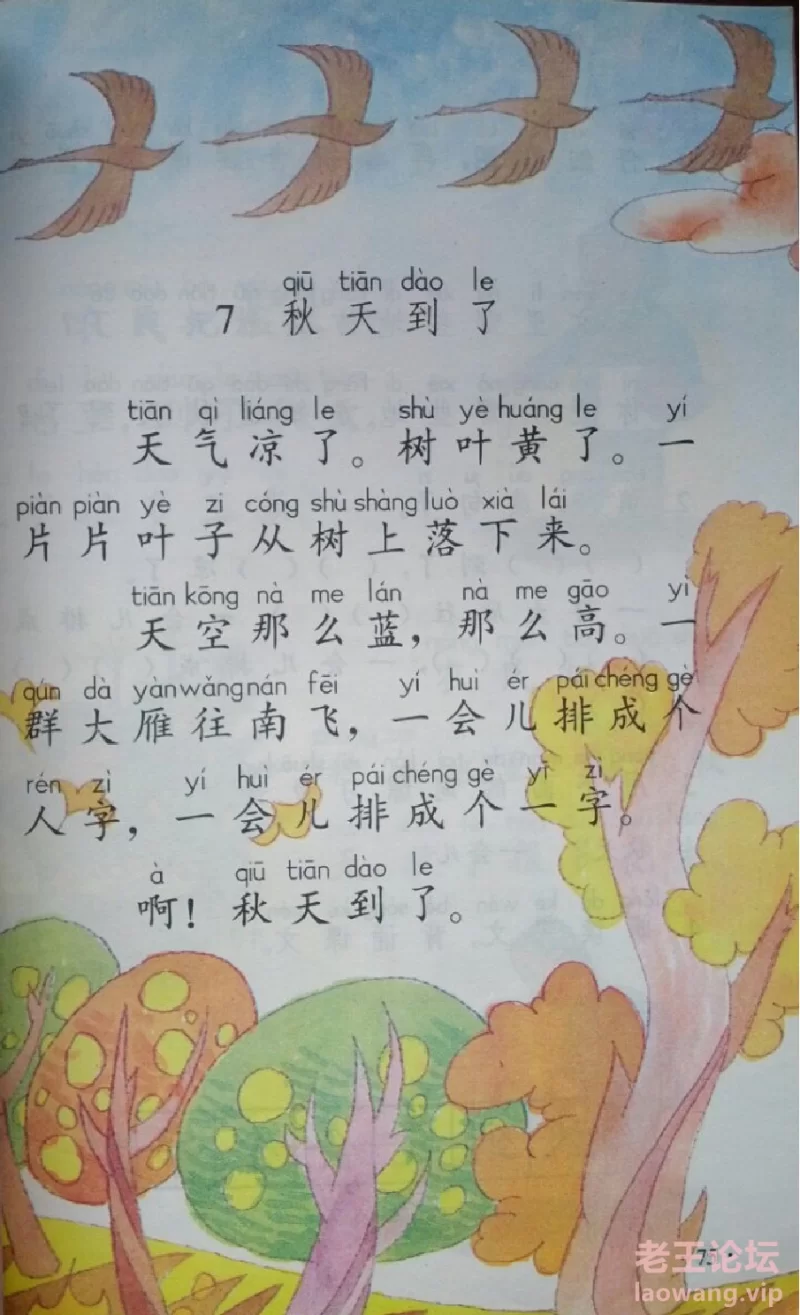 qiū tiān dào le
7 秋天到了
tiān qì liáng le shù yè huáng le yí
天气凉了。树叶黄了。一
piàn piàn yè zi cóng shù shàng luò xià lái
片片叶子从树上落下来。
tiān kōng nà me lán nà me gāo yì
天空那么蓝，那么高。一
qún dà yàn wǎng nán fēi yí huì ér pái chéng gè
群大雁往南飞，一会儿排成个
rén zì yí huì ér pái chéng gè yī zì
人字，一会儿排成个一字。
à qiū tiān dào le
啊！秋天到了。
老王论坛
laowang.vip